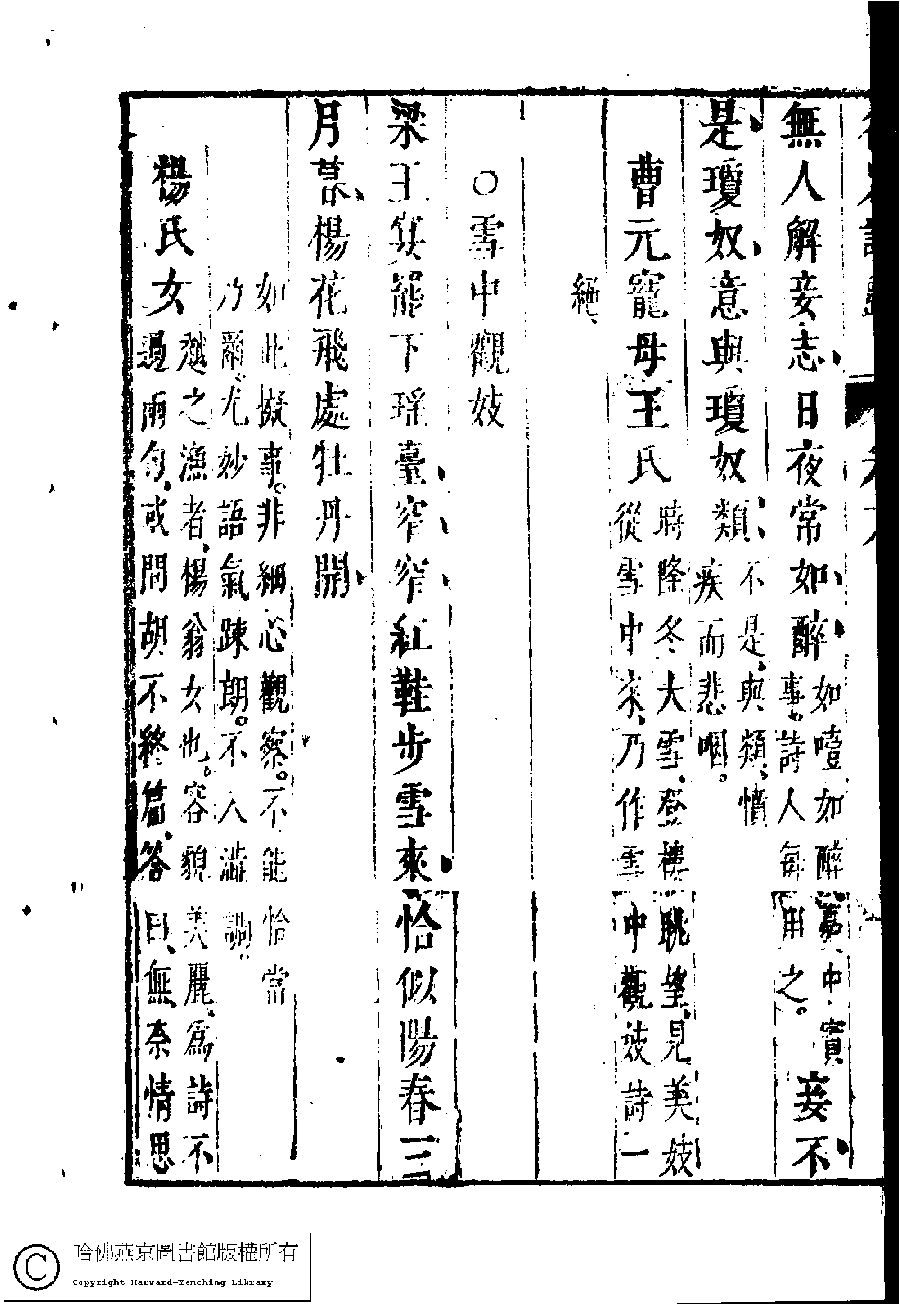 無人解妾志日夜常如醉如噎如醉事詩人每用之妾不
是瓊奴意與瓊奴類不是與類情疾而悲咽
曹元寵母王氏時降冬大雪登樓眺望見美妓從雪中來乃作雪中觀妓詩一
絕
○雪中觀妓
梁王宴罷下瑶臺窄窄紅鞋步雪來恰似陽春三
月暮楊花飛處牡丹開
如此擬事非細心觀察不能恰當
乃爾尤妙語氣疎朗不入滯
楊氏女越之漁者楊翁女也容貌美麗爲詩不
過兩句或問胡不終篇答曰無奈情思
哈佛燕京圖書館版權所有
Copyright Harvard-Yenching Library